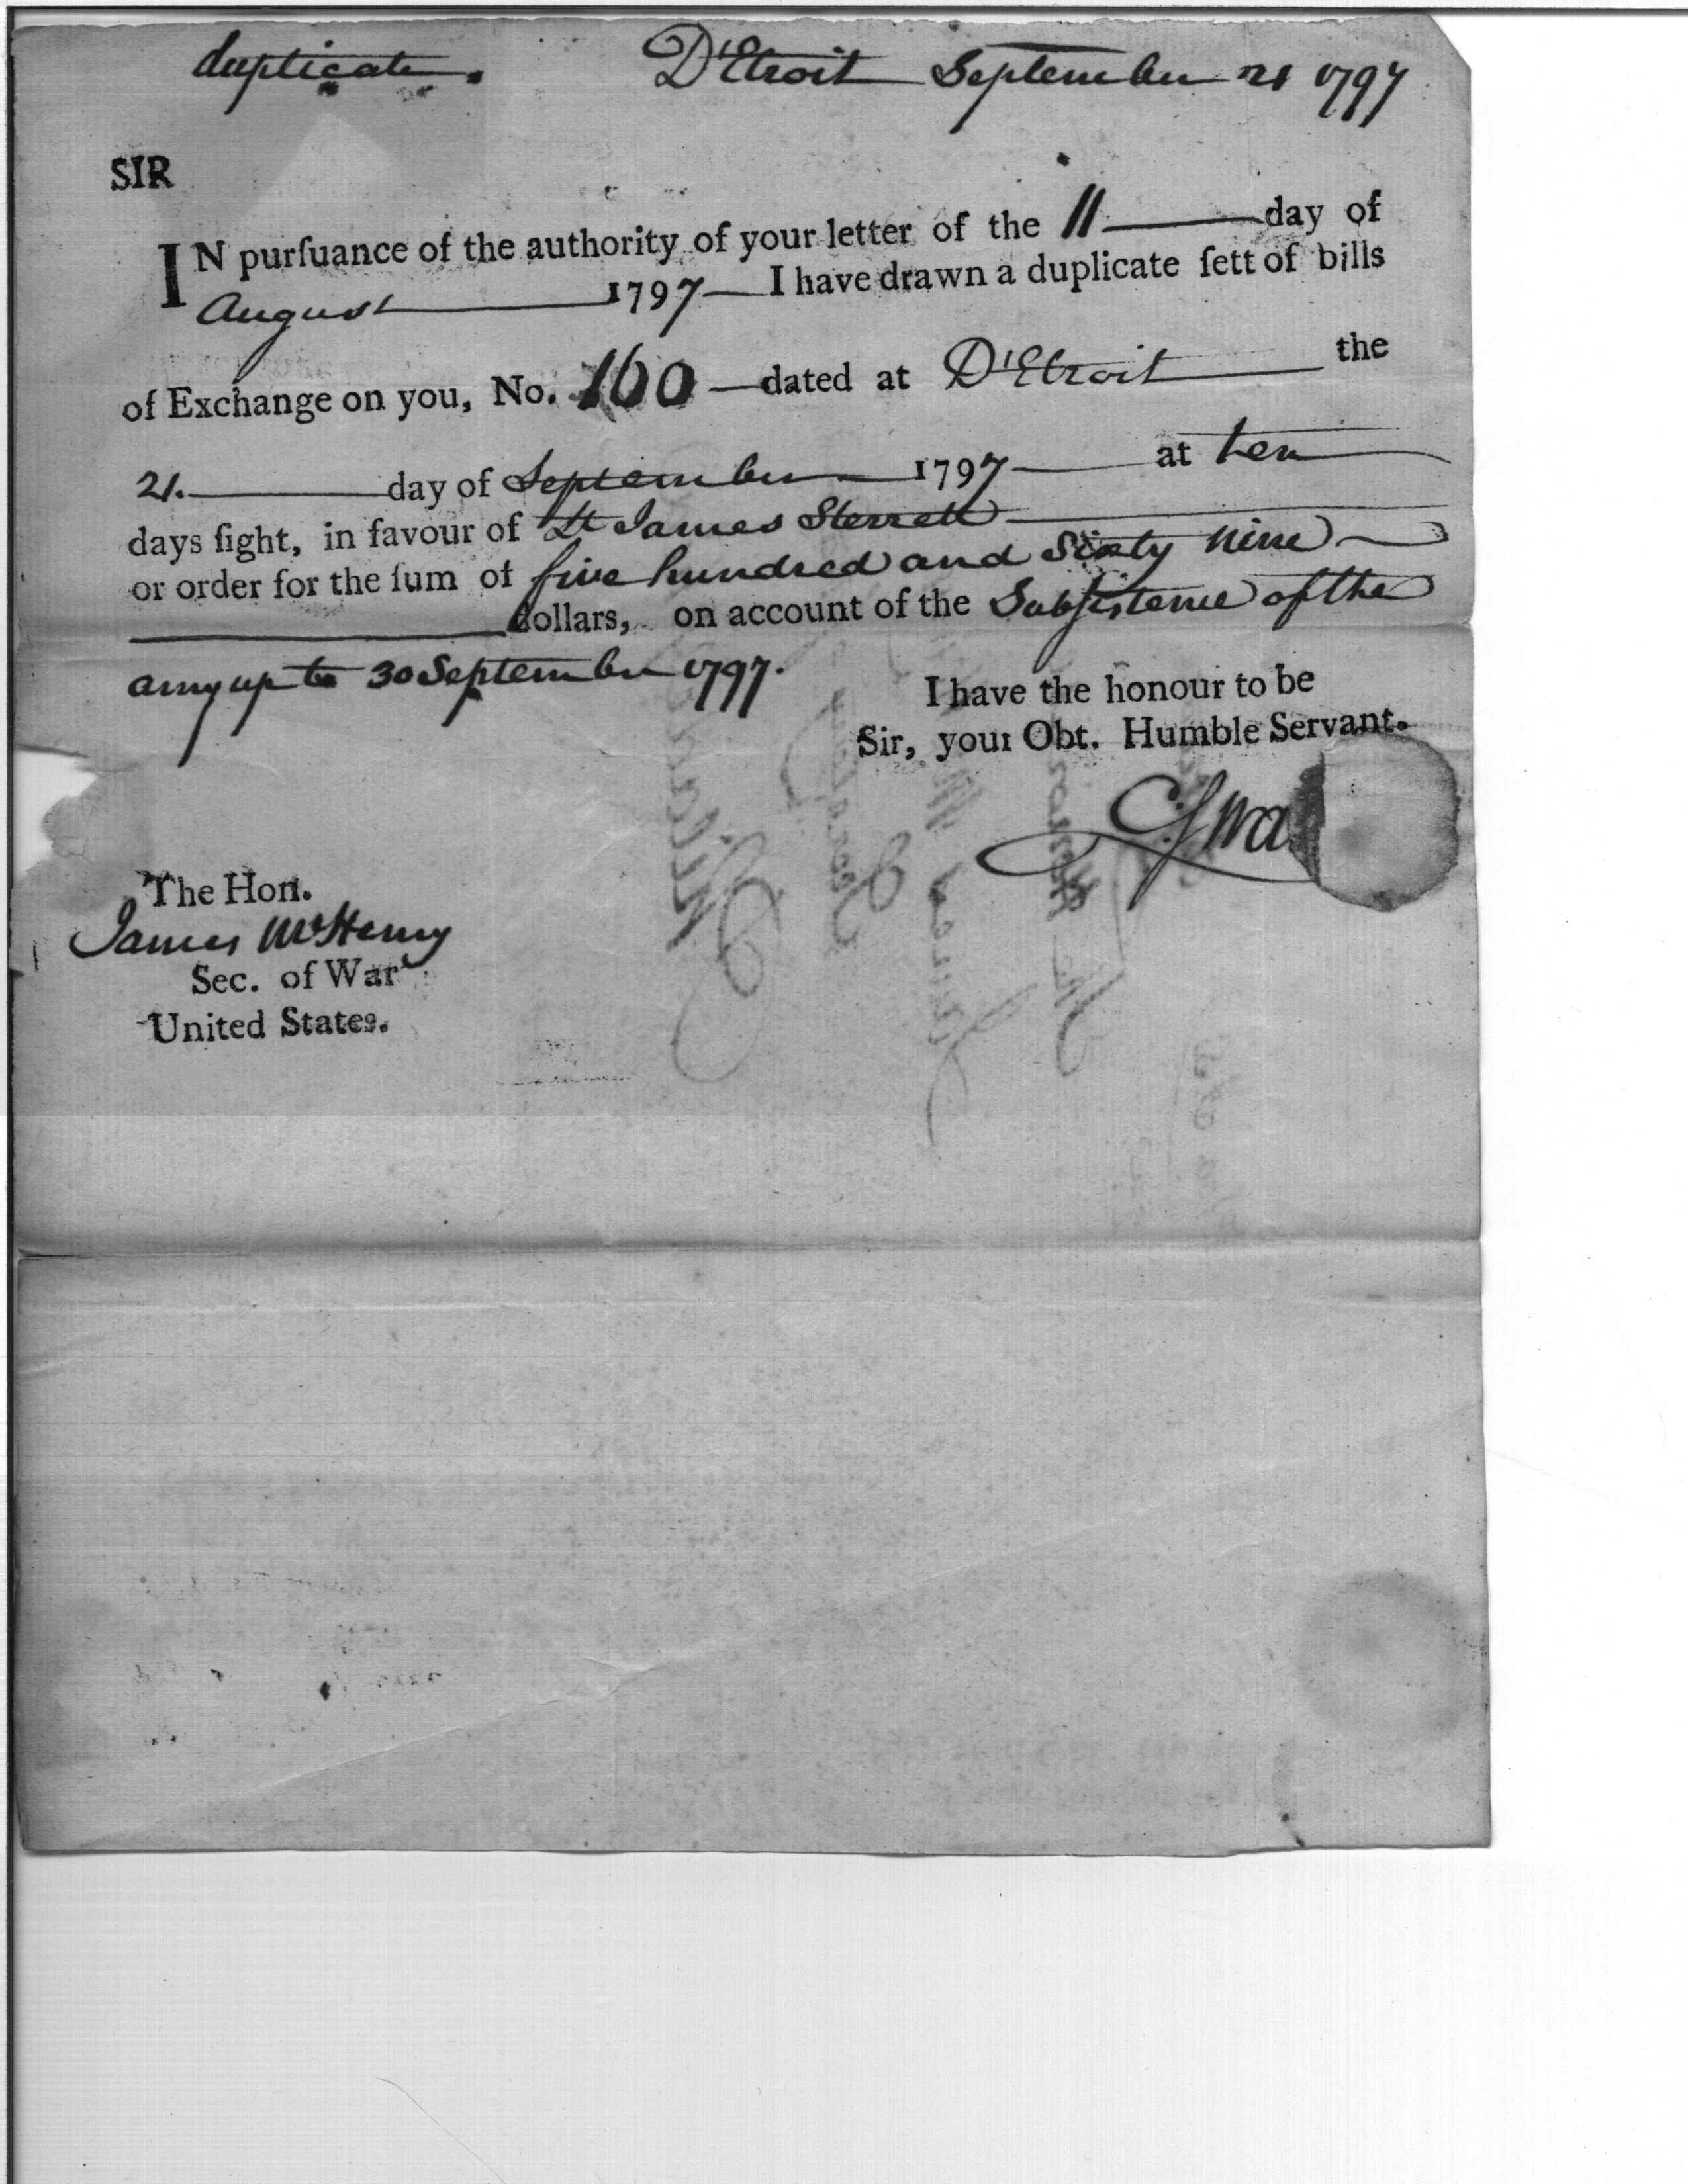 duplicate. D'Etroit September 21 1797
SIR
IN purſuance of the authority of your letter of the 11 day of
August 1797 I have drawn a duplicate ſett of bills
of Exchange on you, No. 160 dated at D'Etroit the
21. day of September 1797 at ten
days ſight, in favour of Lt James Sterrett
or order for the ſum of five hundred and Sixty nine
dollars, on account of the Subsistence of the
army up to 30 September 1797.
I have the honour to be
Sir, your Obt. Humble Servant.
CSwa
The Hon.
James McHenry
Sec. of War
United States.